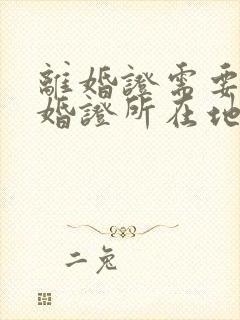 離婚證需要
婚證所在地
二兔